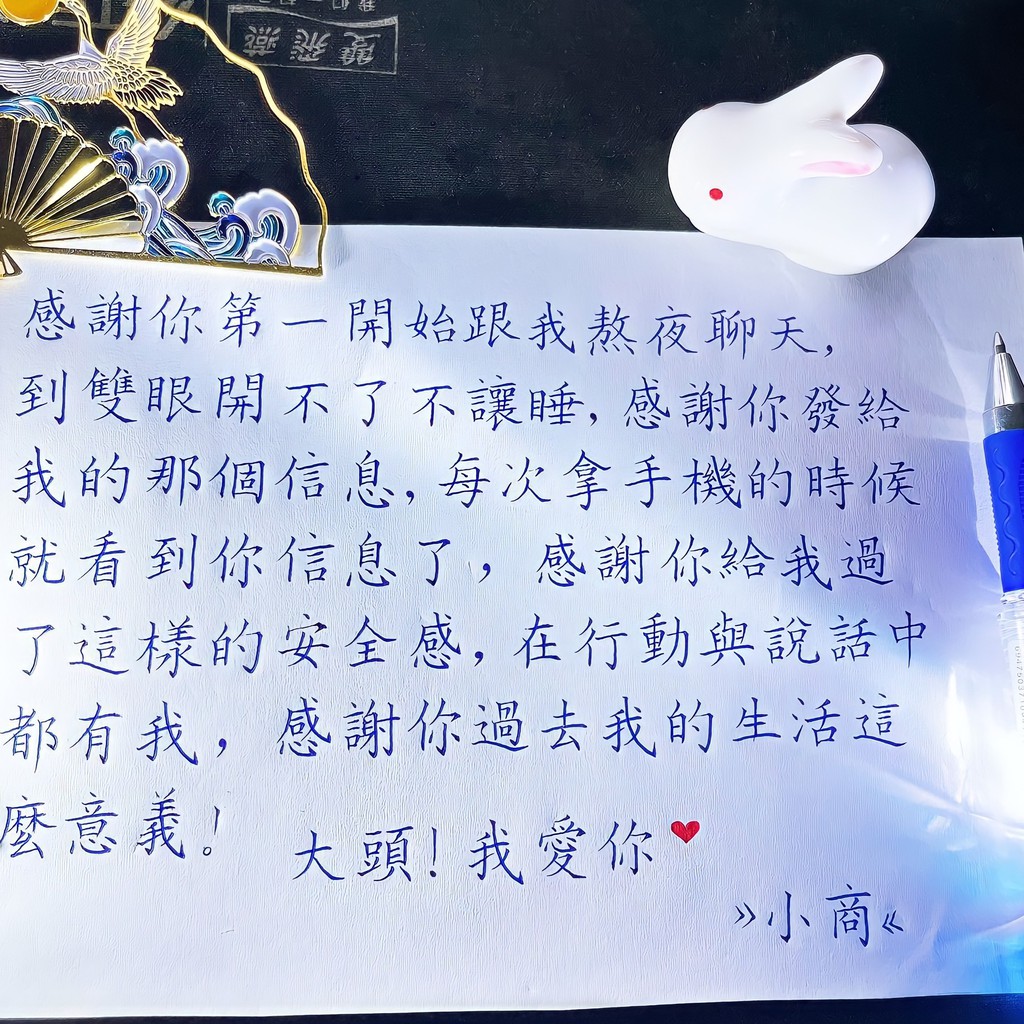 雙飛燕
感謝你第一開始跟我熬夜聊天,
到雙眼開不了不讓睡,感謝你發給
我的那個信息,每次拿手機的時候
就看到你信息了,感謝你給我過
了這樣的安全感,在行動與說話中
都有我,感謝你過去我的生活這
麼意義!
大頭!我愛你
»小商«